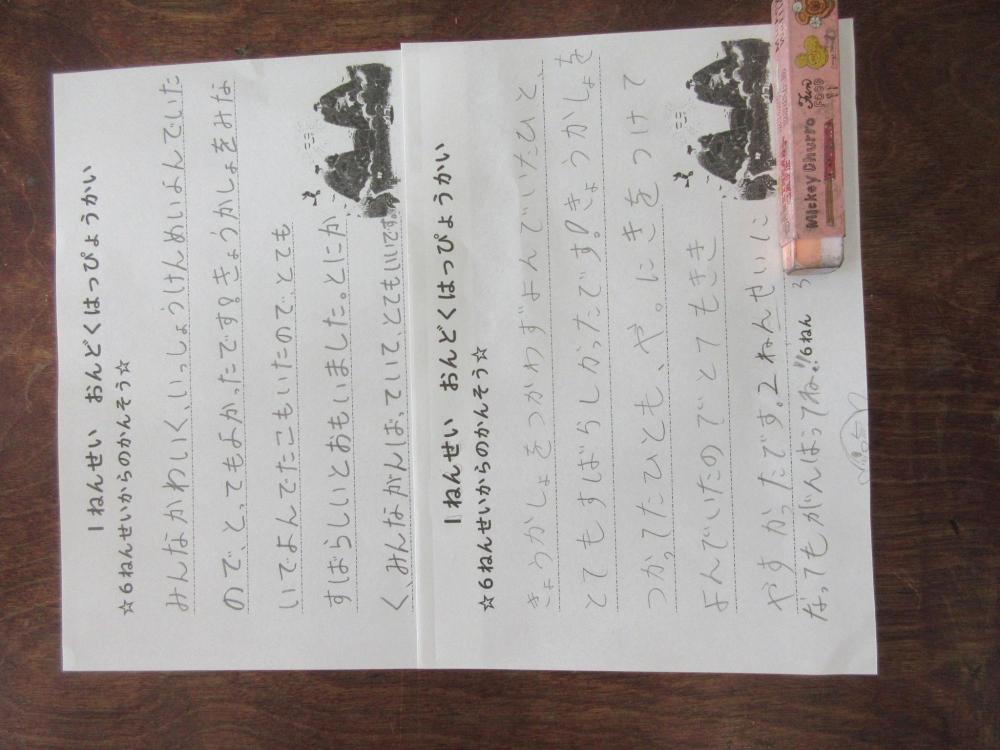 1ねんせい おんどくはっぴょうかい
☆6ねんせいからのかんそう☆
みんなかわいく、いっしょうけんめいよんでいた
ので、とってもよかったです!きょうかしょをみな
いでよんでたこもいたので、とても
すばらしいとおもいました。とにか
く、みんながんばっていて、とてもいいです。
1ねんせい おんどくはっぴょうかい
☆6ねんせいからのかんそう☆
きょうかしょをつかわずよんでいたひと、
とてもすばらしかったです!きょうかしょを
つかってたひとも、や。にきをつけて
よんでいたのでとてもきき
やすかったです。2ねんせいに
なってもがんばってね!!
6ねん
Mickey Churro
Fun
FOOD